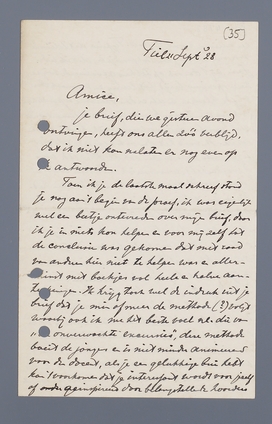 (35)
Tiel Sept 28
Amice,
je brief, die we gisteren avond
ontvingen, heeft ons allen zóó verblijd,
dat ik niet kan nalaten er nog even op
te antwoorden.
Toen ik je de laatste maal schreef stond
je nog aan 't begin van de proef, ik was eigenlijk
wel een beetje ontevreden over mijn brief, daar
ik je in niets kon helpen en voor mij zelf tot
de conclusie was gekomen dat met raad
van anderen hier niet te helpen was en aller-
minst met boekjes vol heele en halve aan-
Ik krijg toch wel de indruk uit je
brief dat je min of meer de methode (?) volgt
waarbij ook ik me het beste voel nl. die van
"de onverwachte excursies", deze methode
boeit de jongens en is niet minder animeerend
voor de docent, als je een gelukkige bui hebt
kan 't voorkomen dat je interessant wordt voor jezelf
of onder geïnspireerd door belangstellende hoorders